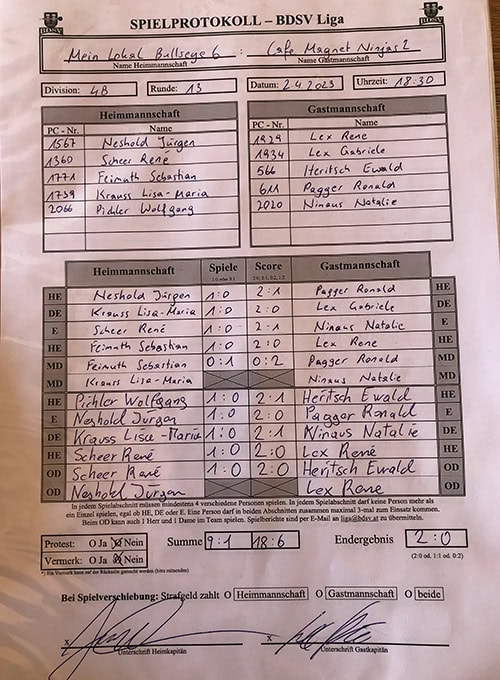 SPIELPROTOKOLL – BDSV Liga
BDSV BDSV
Mein Lokal Bullseye 6 : Cafe Magnet Ninjas 2
Name Heimmannschaft Name Gastmannschaft
Division: 4B Runde: 13 Datum: 2.4.2023 Uhrzeit: 18:30
Heimmannschaft Gastmannschaft
PC - Nr. Name PC - Nr. Name
1567 Neshold Jürgen 1929 Lex Rene
1360 Scheer René 1934 Lex Gabriele
1771 Feimuth Sebastian 566 Heritsch Ewald
1739 Krauss Lisa-Maria 611 Pagger Ronald
2066 Pichler Wolfgang 2020 Ninaus Natalie
Heimmannschaft Spiele Score Gastmannschaft
HE Neshold Jürgen 1:0 2:1 Pagger Ronald HE
DE Krauss Lisa-Maria 1:0 2:0 Lex Gabriele DE
E Scheer René 1:0 2:1 Ninaus Natalie E
HE Feimuth Sebastian 1:0 2:0 Lex Rene HE
MD Feimuth Sebastian 0:1 0:2 Pagger Ronald MD
MD Krauss Lisa-Maria Ninaus Natalie MD
HE Pichler Wolfgang 1:0 2:1 Heritsch Ewald HE
E Neshold Jürgen 1:0 2:0 Pagger Ronald E
DE Krauss Lisa-Maria 1:0 2:1 Ninaus Natalie DE
HE Scheer René 1:0 2:0 Lex René HE
OD Scheer René 1:0 2:0 Heritsch Ewald OD
OD Neshold Jürgen Lex Rene OD
In jedem Spielabschnitt müssen mindestens 4 verschiedene Personen spielen. In jedem Spielabschnitt darf keine Person mehr als
ein Einzel spielen, egal ob HE, DE oder E. Eine Person darf in beiden Abschnitten zusammen maximal 3-mal zum Einsatz kommen.
Beim OD kann auch 1 Herr und 1 Dame im Team spielen. Spielberichte sind per E-Mail an liga@bdsv.at zu übermitteln.
Protest: O Ja O Nein Summe 9:1 18:6 Endergebnis 2:0
Vermerk: O Ja O Nein (2:0 od. 1:1 od. 0:2)
Bei Spielverschiebung: Strafgeld zahlt O Heimmannschaft O Gastmannschaft O beide
x x
Unterschrift Heimkapitän Unterschrift Gastkapitän